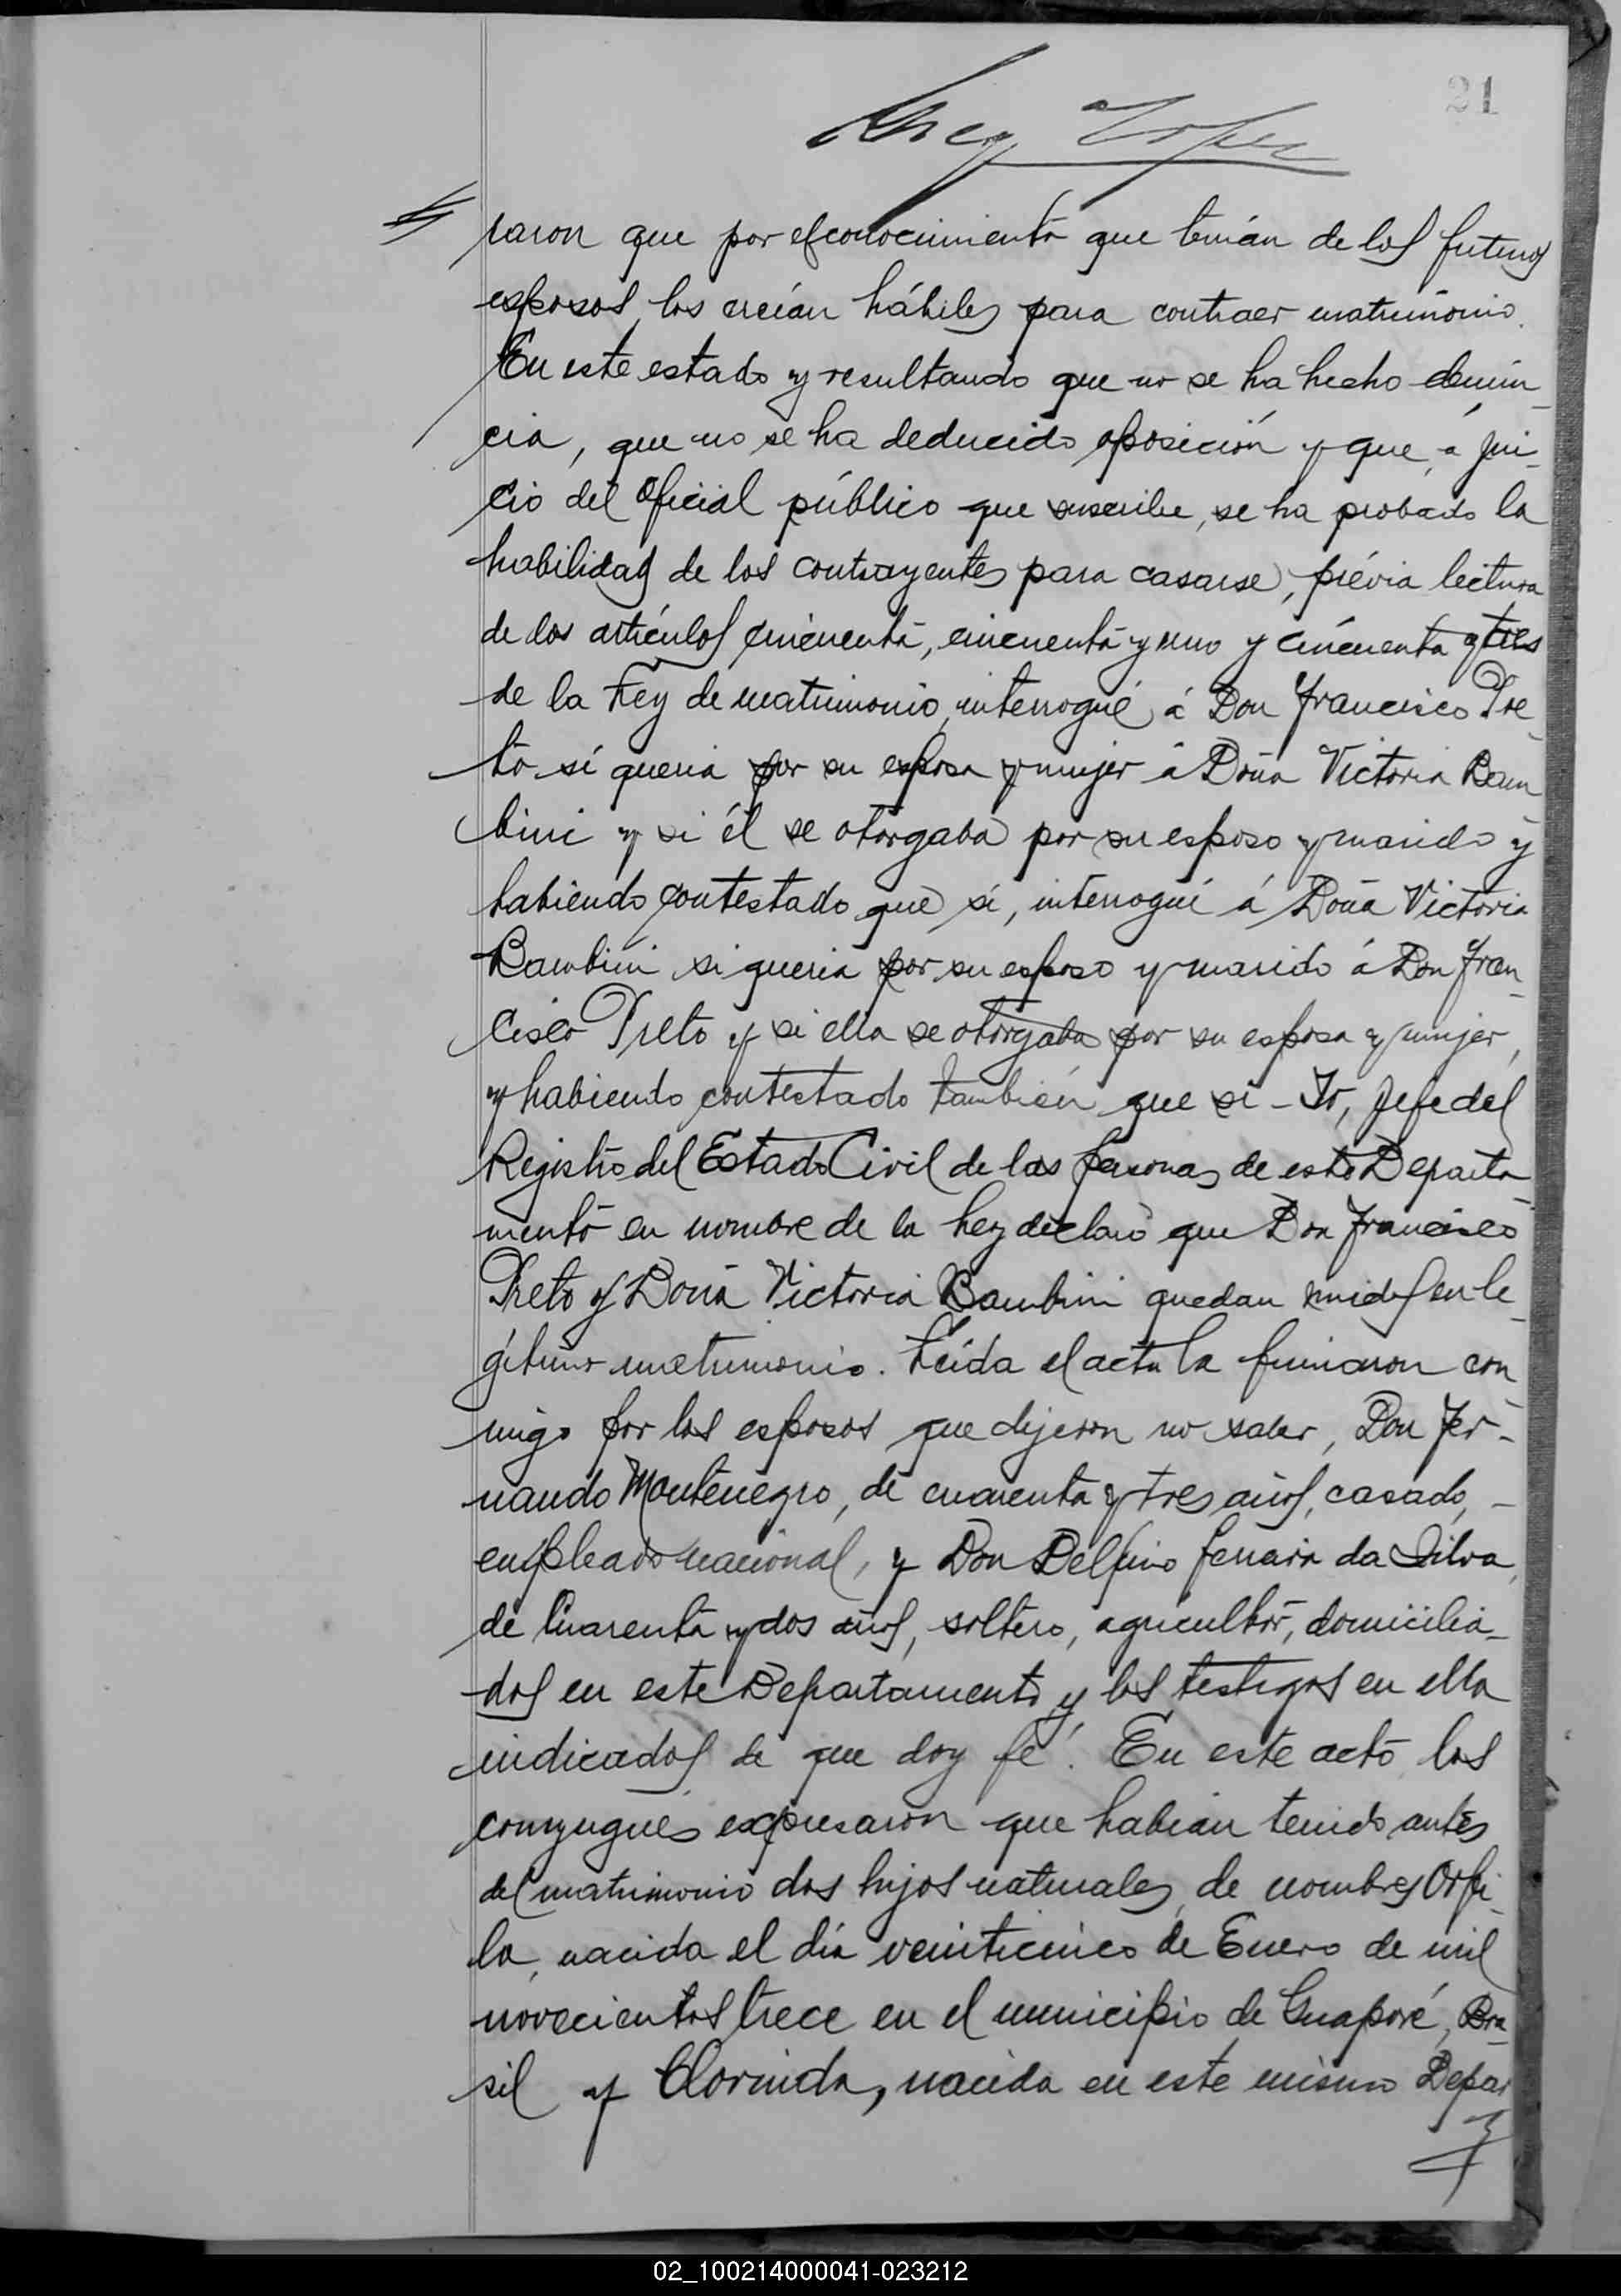 21
raron que por el conocimiento que tenián de los futuros
esposos, los creían hábiles para contraer matrimonio.
En este estado y resultando que no se ha hecho denún_
cia, que no se ha deducido oposición y que, á jui_
cio del Oficial público que suscribe, se ha probado la
habilidad de los contrayentes para casarse, prévia lectura
de los artículos cincuenta, cincuenta y uno y cincuenta y tres
de la Ley de matrimonio, interrogué á Don Francisco Pre_
to si queria por su esposa y mujer á Doña Victoria Bam
bini y si él se otorgaba por su esposo y marido y
habiendo contestado que si, interrogué á Doña Victoria
Bambini si queria por su esposo y marido á Don Fran_
cisco Preto y si ella se otorgaba por su esposa y mujer,
y habiendo contestado también que si - Yo, Jefe del
Registro del Estado Civil de las personas de este Departa_
mento en nombre de la Ley declaro que Don Francisco
Preto y Doña Victoria Bambini quedan unidos en le_
gítimo matrimonio. Leída el acta la firmaron con_
migo por los esposos que dijeron no saber, Don Fer-
nando Montenegro, de cuarenta y tres años, casado, -
empleado nacional, y Don Delfino Ferraira da Silva,
de Cuarenta y dos años, soltero, agricultor, domicilia_
dos en este Departamento y los testigos en ella
indicados de que doy fé. En este acto los
conyugues expresaron que habian tenido antes
del matrimonio dos hijos naturales, de nombres Orfi_
la, nacida el dia veinticinco de Enero de mil
novecientos trece en el municipio de Guaporé, Bra_
sil y Clorinda, nacida en este mismo Depar
02_100214000041-023212